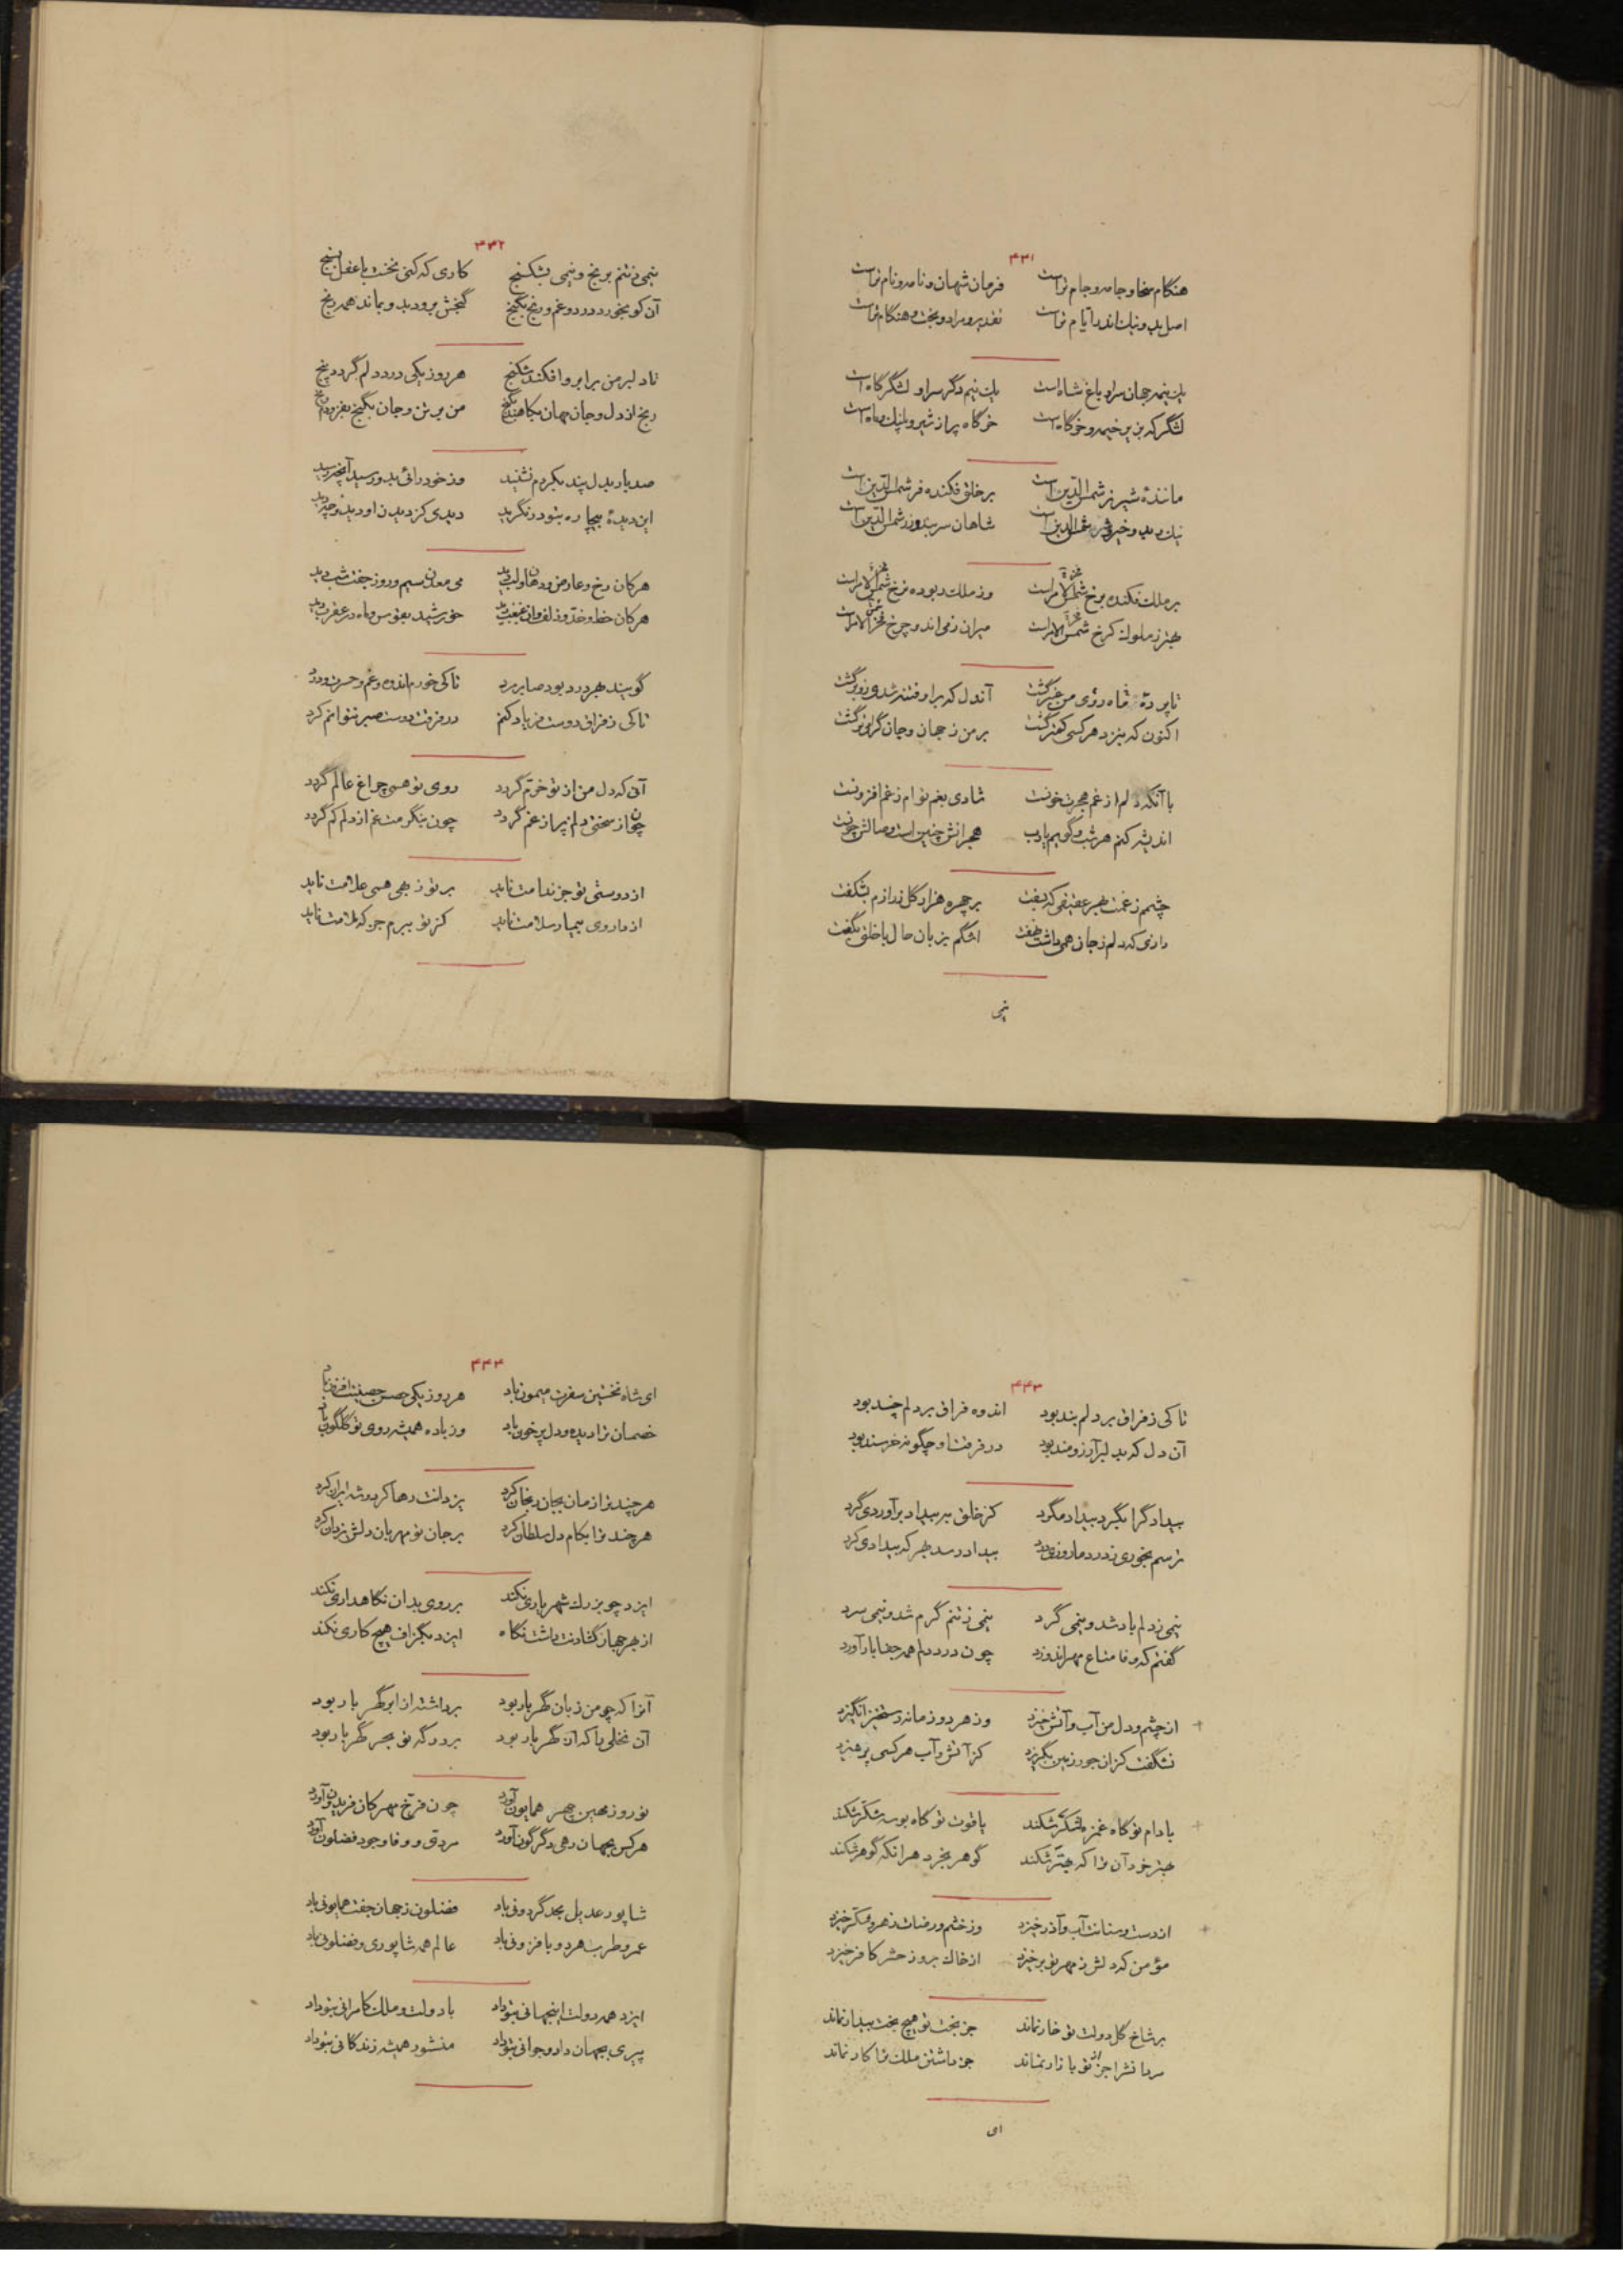 ۴۳۱
هنگام سخا و جامه و جام تراست فرمان شهان و نامه و نام تراست
اصل بد و نیک اندر ایام تراست تقدیر و مراد و بخت و هنگام تراست
یک نیمه جهان سرای و باغ شاه است یک نیم دگر سرا و لشگرگاه است
لشگرگه بر خیمه و خرگاه است خرگاه پر از شیر و پلنگ و ماه است
ماننده شیر نر شمس الدین است بر خلق فکنده فر شمس الدین است
نیک و بد و خیر و شر شمس الدین است شاهان سر بدوزند شمس الدین است
بر ملک فکنده برخ شمس الامراست وز ملک ربوده نرخ شمس الامراست
بهتر ز ملوک کرخ شمس الامراست میران زمی‌اند و چرخ شمس الامراست
تا پرده ماه روی من عنبر گشت آندل که بر او فتنه شدی زو برگشت
اکنون که بنزد هر کسی کهتر گشت بر من ز جهان و جان گرامی‌تر گشت
با آنکه دلم از غم هجرت خونست شادی بغم توام ز غم افزونست
اندیشه کنم هر شب و گویم یا رب هجرانش چنین است وصالش چونست
چشمم ز غمت بهر عقیقی که بسفت بر چهره هزار گل ز رازم بشکفت
رازی که دلم ز جان همی داشت نهفت اشگم بزبان حال با خلق بگفت
نیمی
۴۳۲
نیمی ز تنم برنج و نیمی بشکنج کاری که کنی نخست با عقل بسنج
آن کو بخورد درد و غم و رنج بگنج گنجش برود بد و بماند همه رنج
تا دلبر من برابر و افکند شکنج هر روز یکی درد دلم گردد پنج
رنج از دل و جان مهان بکاهند بگنج من بر تن و جان بگنج بفزودم رنج
صد بار بدل پند بکردم نشنید وز خود رائی بد و رسید آنچه رسید
این دیده بیچاره بتو در نگرید دیدی کز دیدن او دیده چه دید
هر کان رخ و عارض و دهان و لب دید می معدن سیم و روز جفت شب دید
هر کان خط و خد و زلف و آن غبغب دید خورشید بقوس و ماه در عقرب دید
گویند بهر درد بود صابر مرد تا کی خورم اندوه و غم و حسرت و درد
تا کی ز فراق دوست فریاد کنم در فرقت دوست صبر نتوانم کرد
آنی که دل من از تو خرم گردد روی تو همی چراغ عالم گردد
چون از سختی دلم پر از غم گردد چون بنگرمت غم از دلم کم گردد
از دوستی تو جز ندامت ناید بر تو ز بهی همی علامت ناید
از داروی بیمار سلامت ناید کز تو ببرم جز که ملامت ناید
۴۴۳
تا کی ز فراق بر دلم بند بود اندوه فراق بر دلم چند بود
آن دل که بدلبر آرزومند بود در فرقت او چگونه خرسند بود
بیدادگرا بگرد بیداد مگرد کز خلق ببیداد برآوردی گرد
ترسم بخوری ز درد ما روزی درد بیداد رسد بهر که بیدادی کرد
نیمی ز دلم باد شد و نیمی گرد نیمی ز تنم گرم شد و نیمی سرد
گفتم که وفا متاع مهر اندوزد چون درد دلم همه جفا بار آورد
از چشم و دل من آب و آتش خیزد وز هر دو زمانه رستخیز انگیزد
نشگفت کز آن جور زمین بگریزد کز آتش و آب هر کسی پرهیزد
بادام تو گاه غمزه لشکر شکند یاقوت تو گاه بوسه شکر شکند
بهتر خرد آن ترا که بهتر شکند گوهر بخرد هرآنکه گوهر شکند
از دست و سنانت آب و آذر خیزد وز خشم و رضات زهر و شکر خیزد
مؤمن که دلش ز مهر تو برخیزد از خاک بروز حشر کافر خیزد
بر شاخ گل دولت تو خار نماند جز بخت تو هیچ بخت بیدار نماند
مردانش را جز از تو بازار نماند جز داشتن ملک ترا کار نماند
ای
۴۴۴
ای شاه نخستین سفرت میمون باد هر روز یکی حصن حصینت افزون باد
خصمان ترا دیده و دل پر خون باد وز باده همیشه روی تو گلگون باد
هر چند ترا زمان بیجان رنجان کرد یزدانت رها کرد و شه ایران کرد
هر چند ترا بکام دل سلطان کرد بر جان تو مهربان دلش یزدان کرد
ایزد چو بزرگ شهریاری نکند بر روی بدان نگاهداری نکند
از بهر جهان گشادنت داشت نگاه ایزد بگزاف هیچ کاری نکند
آنرا که چو من زبان گهربار بود برداشته از ابر گهر بار بود
آن نخلی را که آن گهر بار بود بر درگه تو بحر گهربار بود
نوروز مهین چهر همایون آورد چون فرخ مهرگان فریدون آورد
هر کس بجهان رهی دگرگون آورد مردی و وفا و جود فضلون آورد
شاپور عدیل بجد گردونی باد فضلون ز جهان جفت همایونی باد
عمر و طرب هر دو بافزونی باد عالم همه شاپوری و فضلونی باد
ایزد همه دولت اینجهانی بتو داد با دولت و ملک کامرانی بتو داد
پیری بجهان داد و جوانی بتو داد منشور همیشه زندگانی بتو داد